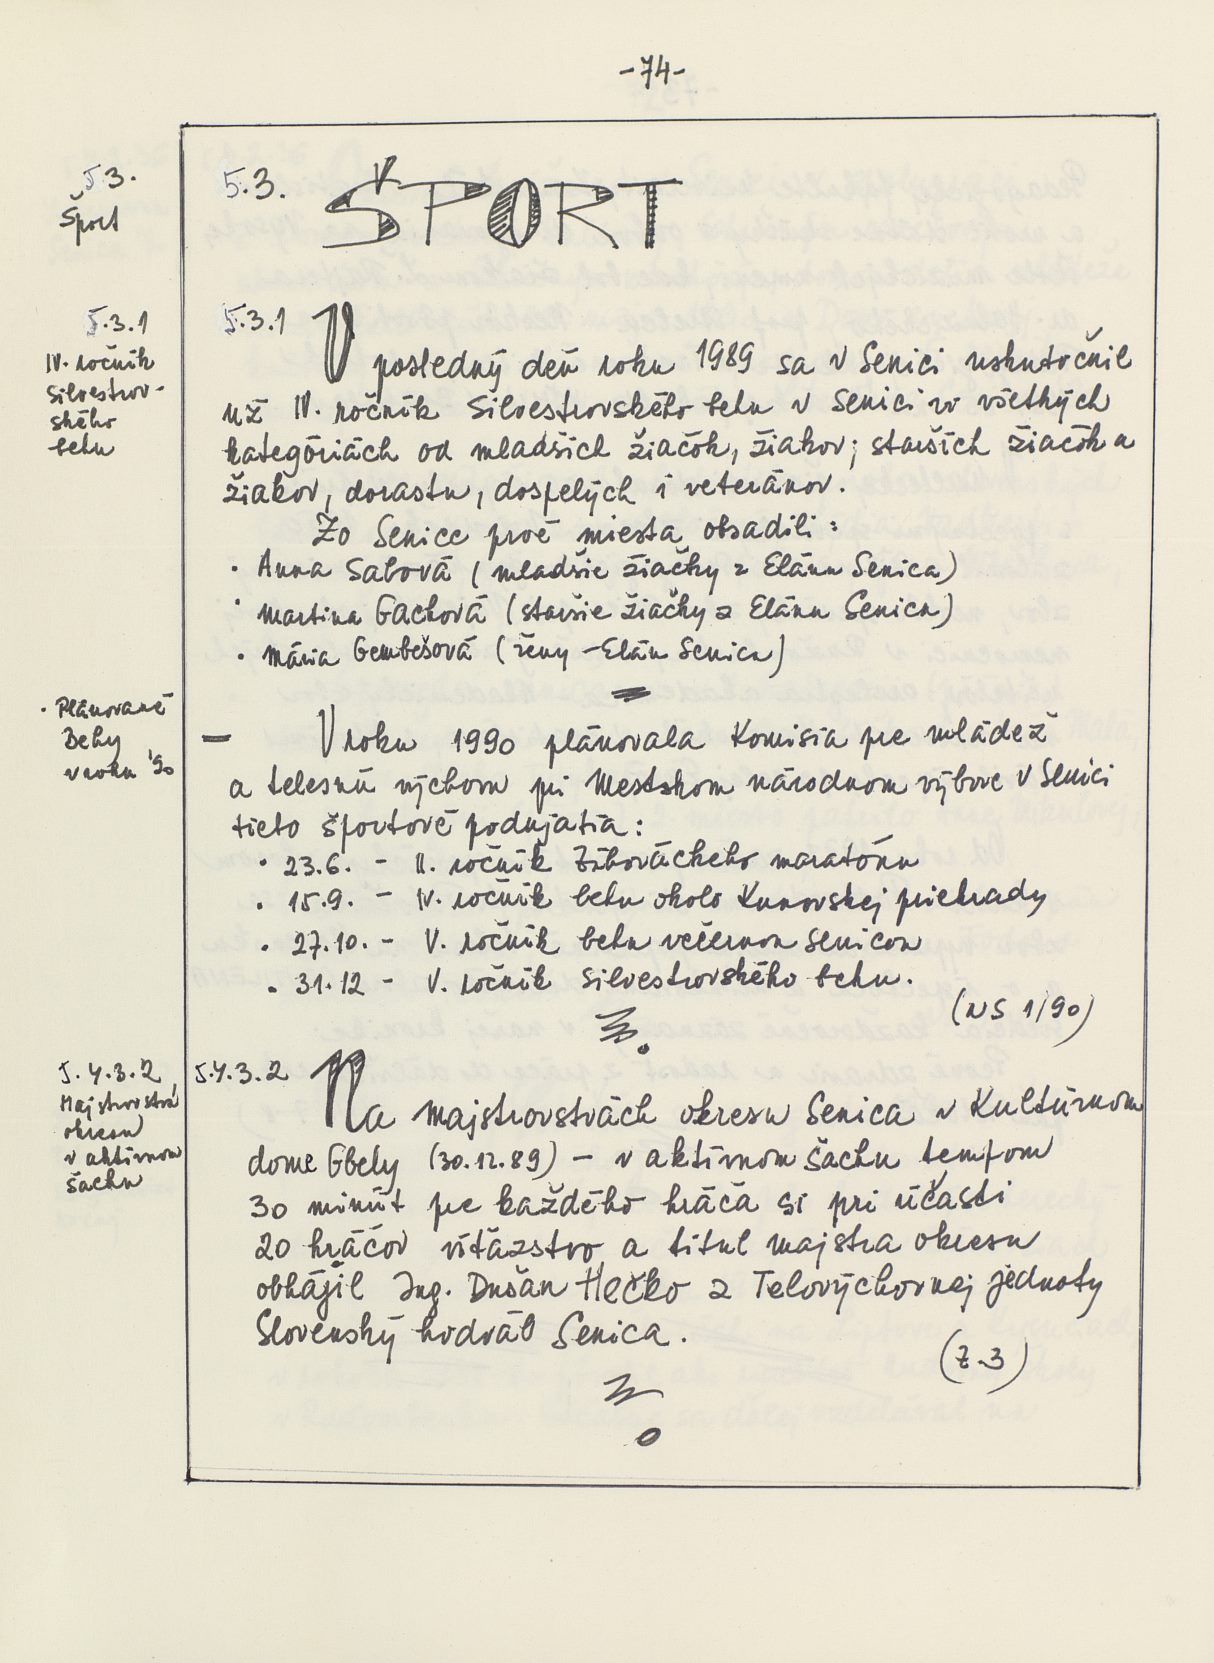 -74-
5.3.
Šport
5.3. ŠPORT
5.3.1
IV. ročník
Silvestrov-
ského
behu
5.3.1 V posledný deň roku 1989 sa v Senici uskutočnil
už IV. ročník Silvestrovského behu v Senici vo všetkých
kategóriách od mladších žiačok, žiakov; starších žiačok a
žiakov, dorastu, dospelých i veteránov.
Zo Senice prvé miesta obsadili:
• Anna Sabová (mladšie žiačky z Elánu Senica)
• Martina Gachová (staršie žiačky z Elánu Senica)
• Mária Gembešová (ženy - Elán Senica)
• Plánované
Behy
v roku '90
– V roku 1990 plánovala Komisia pre mládež
a telesnú výchovu pri Mestskom národnom výbore v Senici
tieto športové podujatia:
• 23.6. - II. ročník Záhoráckeho maratónu
• 15.9. - IV. ročník behu okolo Kunovskej priehrady
• 27.10. - V. ročník behu večernou Senicou
• 31.12 - V. ročník Silvestrovského behu.
(NS 1/90)
5.4.3.2
Majstrovstvá
okresu
v aktívnom
šachu
5.4.3.2 Na Majstrovstvách okresu Senica v Kultúrnom
dome Gbely (30.12.89) – v aktívnom šachu tempom
30 minút pre každého hráča si pri účasti
20 hráčov víťazstvo a titul majstra okresu
obhájil Ing. Dušan Hečko z Telovýchovnej jednoty
Slovenský hodváb Senica.
(Z.3)